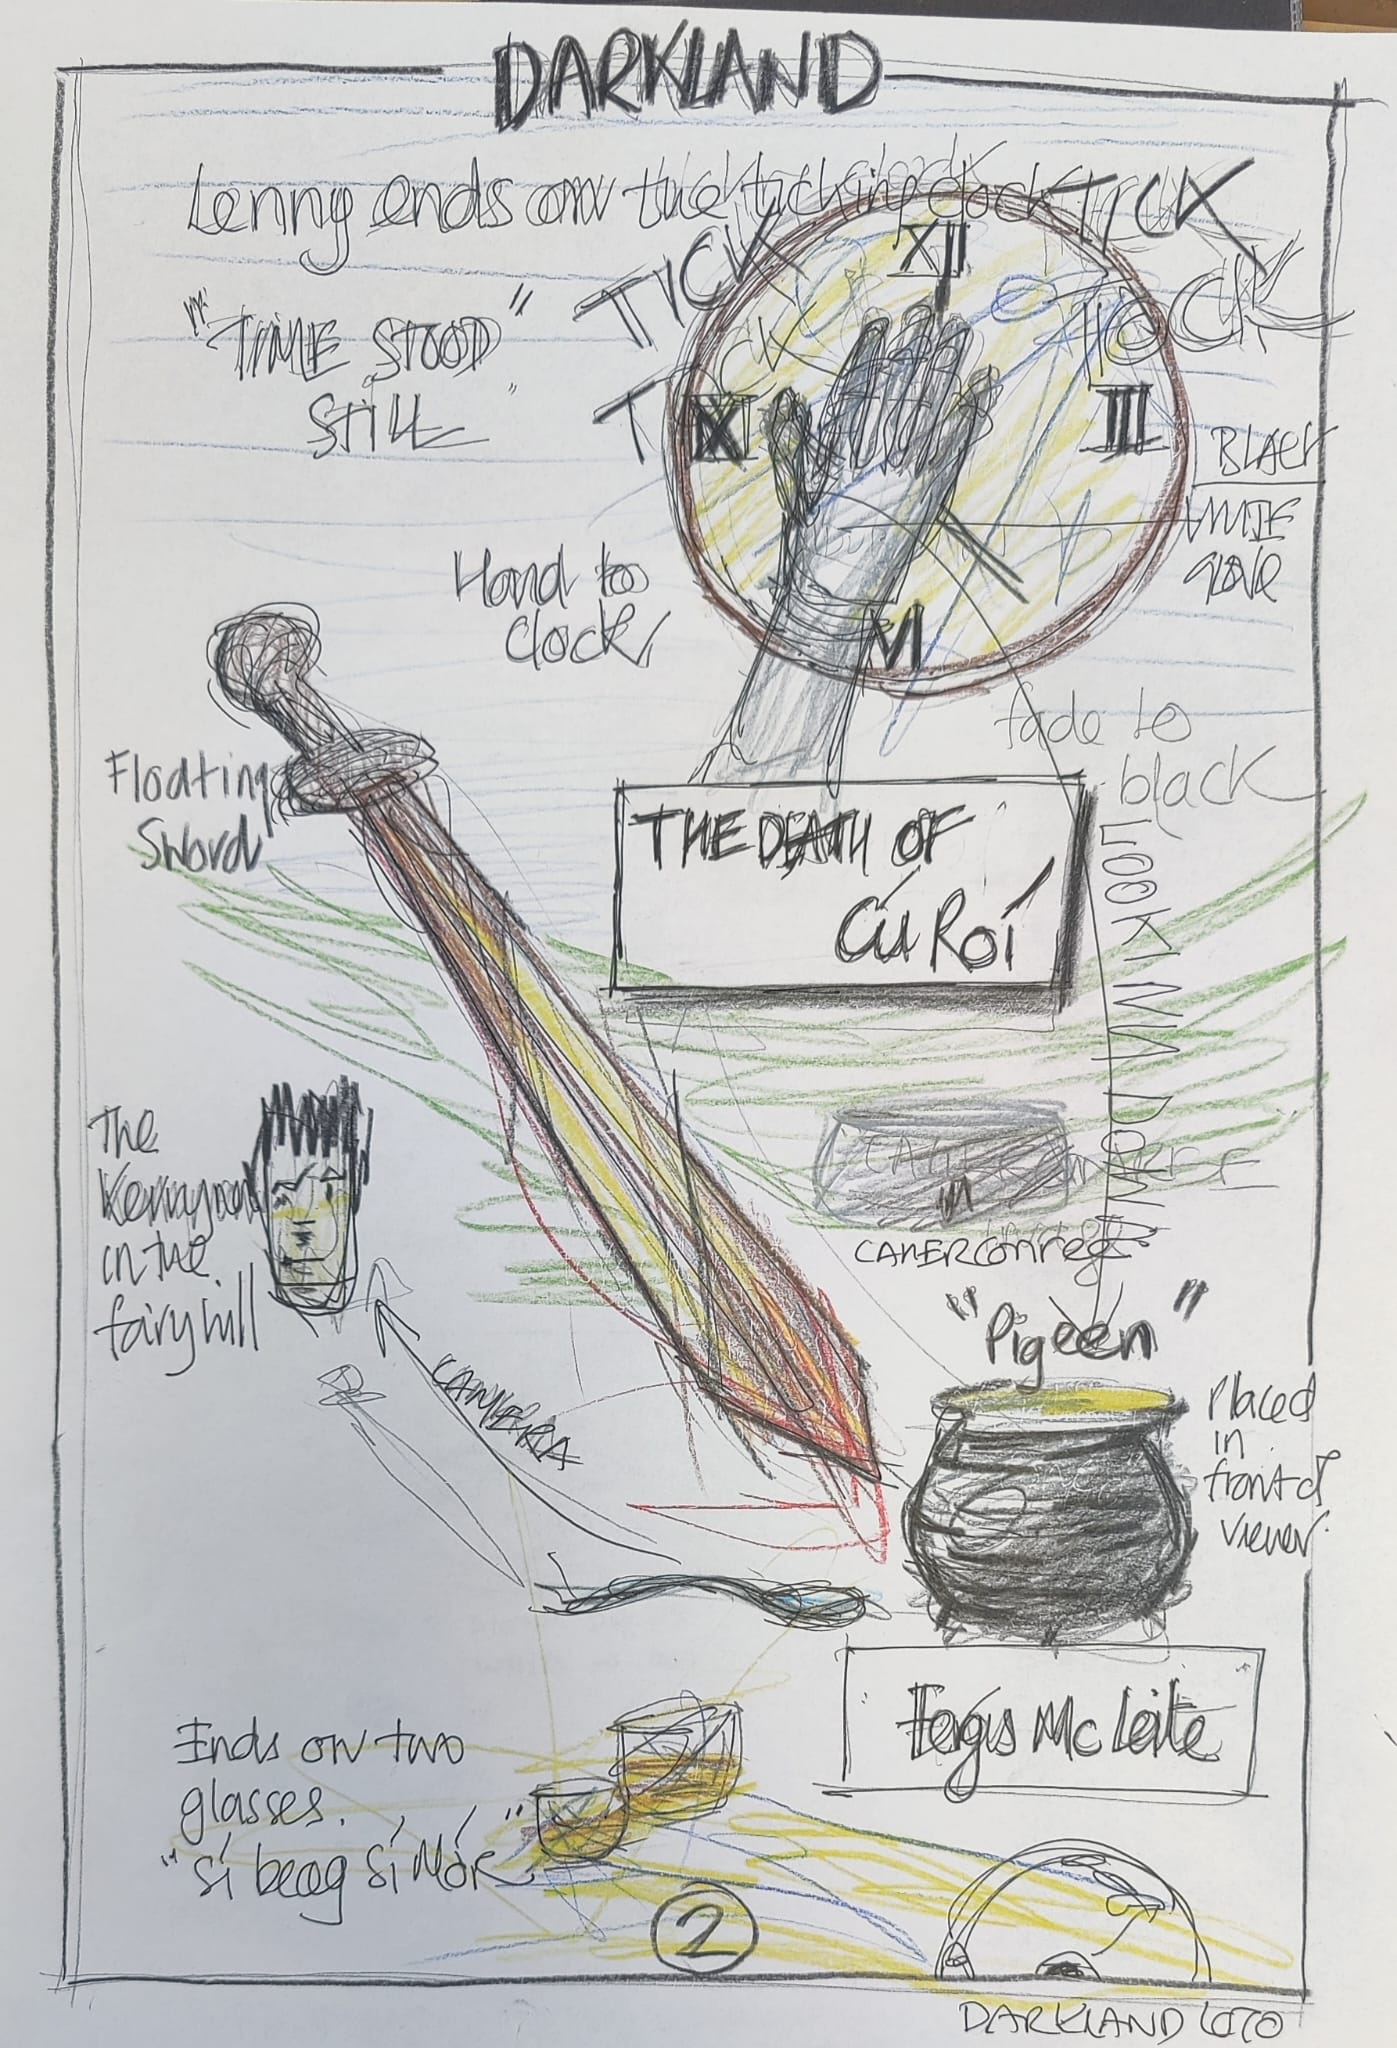 DARKLAND
Lenny ends on the ticking clock TICK
TICK
TOCK
"TIME STOOD
STILL"
XII
IX
III
VI
Hand to
clock
glove
fade to
black
Floating
Sword
THE DEATH OF
Cú Roí
LOOKING DOWN
The
Kerryman
in the
fairy hill
CAMERA
"Pigeen"
Placed
in
front of
viewer.
Fergus Mc Leite
Ends on two
glasses.
"Sí beag Sí Mór"
2
DARKLAND